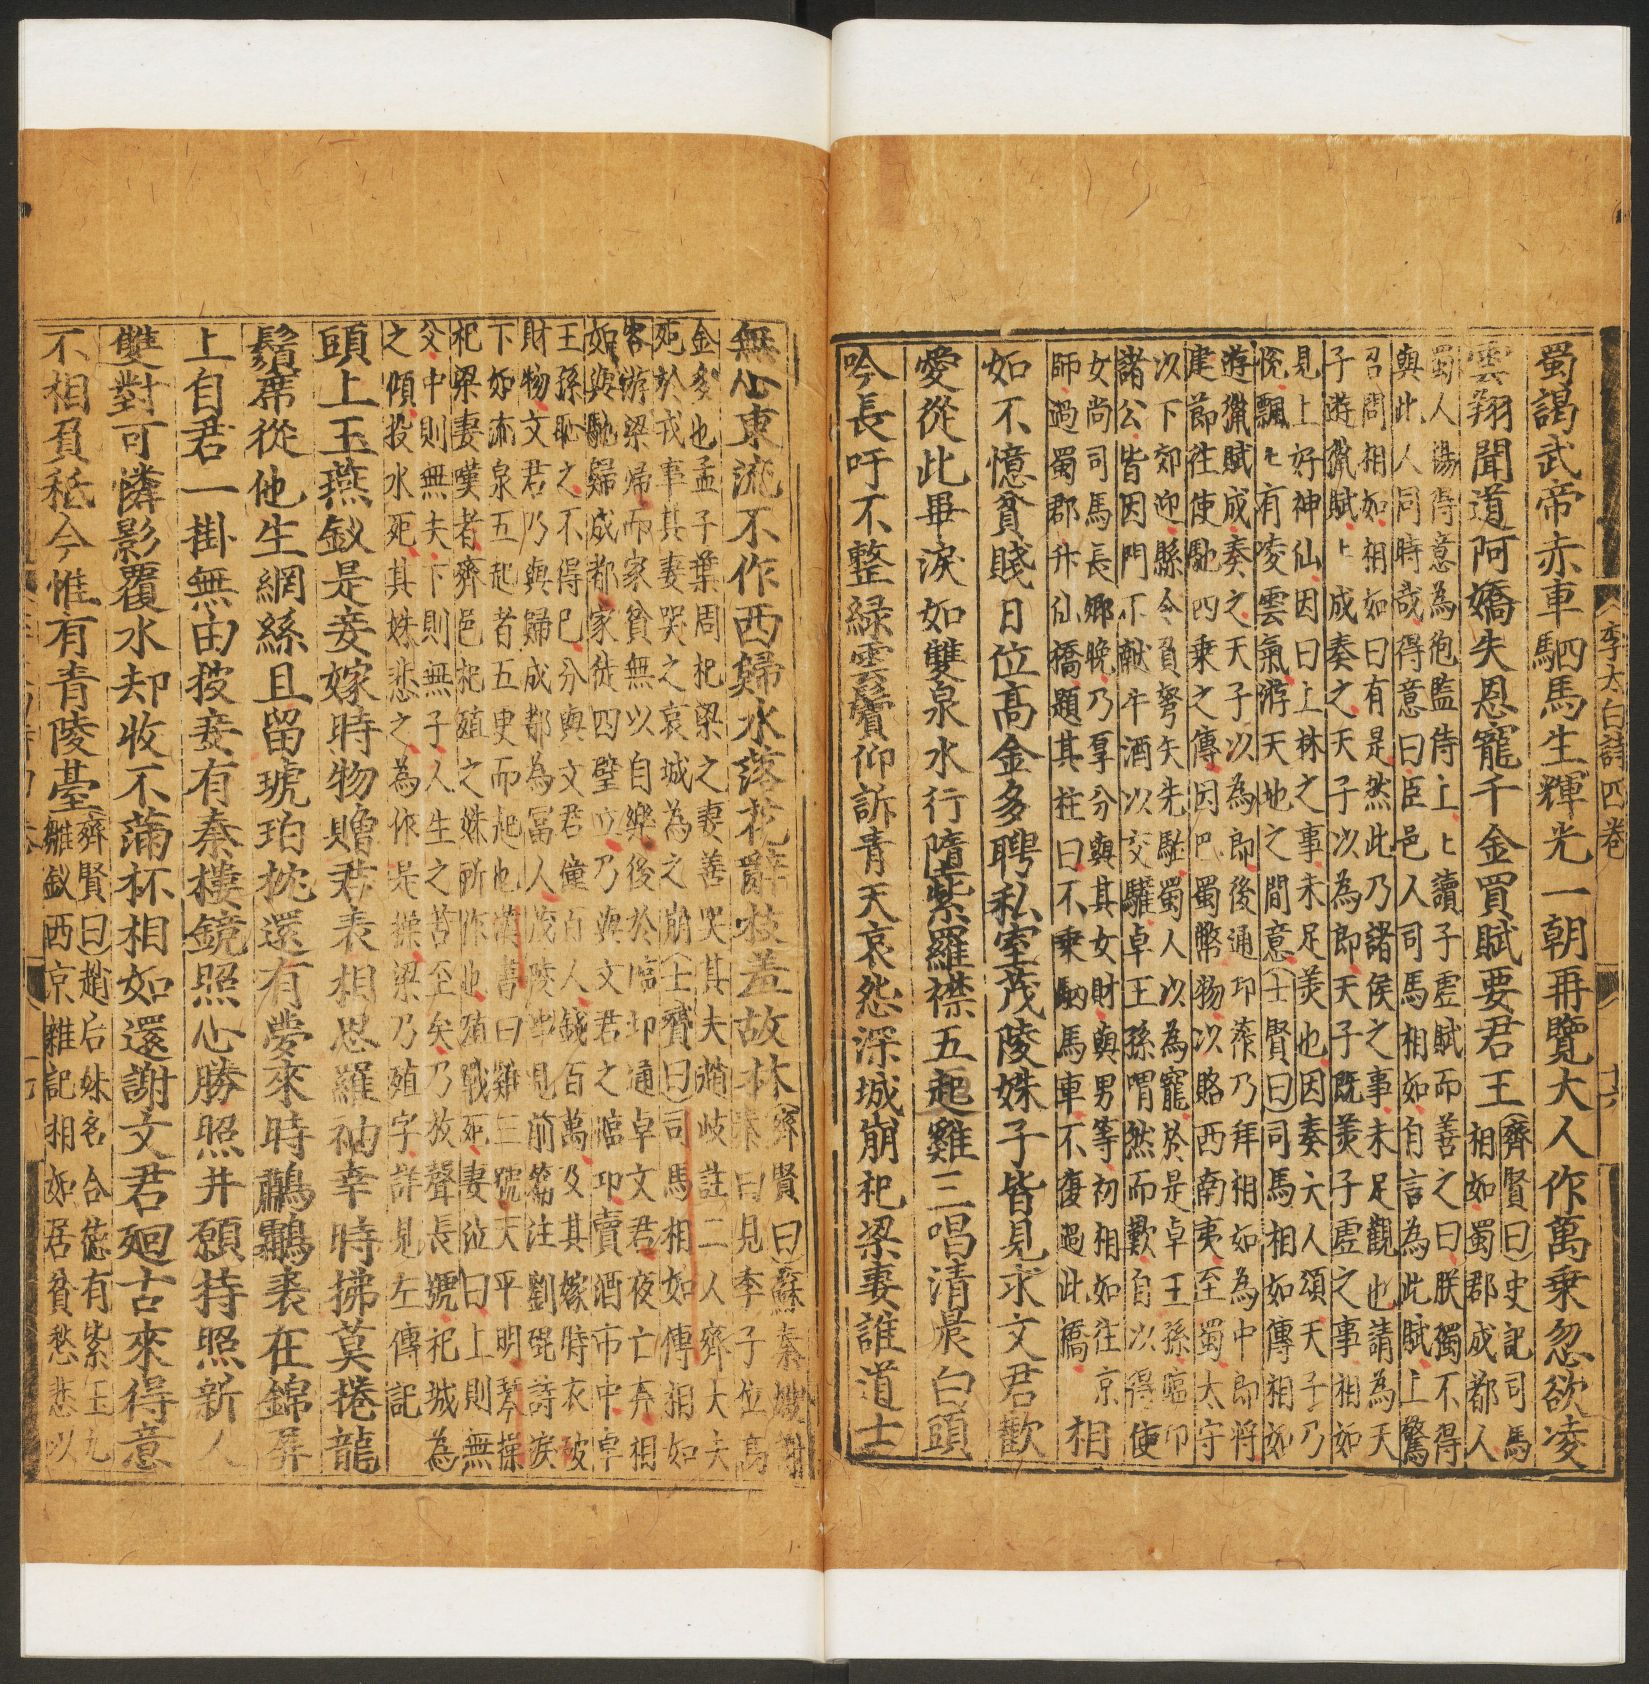 蜀謁武帝赤車駟馬生輝光一朝再覽大人作萬乗忽欲凌
雲翔聞道阿嬌失恩寵千金買賦要君王
(齊賢曰)史記司馬
相如蜀郡成都人
蜀人楊得意為狗監侍上上讀子虚賦而善之曰朕獨不得
與此人同時哉得意曰臣邑人司馬相如自言為此賦上驚
召問相如相如曰有是然此乃諸侯之事未足觀也請為天
子遊獵賦上成奏之天子以為郎天子旣羙子虚之事相如
見上好神仙因曰上林之事未足羙也因奏大人頌天子乃
恱飄飄有陵雲氣游天地之間意(士賢曰)司馬相如傳相如
遊獵賦成奏之天子以為郎後通卭莋乃拜相如為中郎将
建節往使馳四乗之傳因巴蜀幣物以賂西南夷至蜀太守
以下郊迎縣令負弩矢先駈蜀人以為寵於是卓王孫臨卭
諸公皆因門下獻牛酒以交驩卓王孫喟然而歎自以得使
女尚司馬長卿晚乃厚分與其女財與男等初相如往京
師過蜀郡升仙橋題其柱曰不乗駟馬車不復過此橋
相
如不憶貧賤日位髙金多聘私室茂陵姝子皆見求文君歡
愛從此畢淚如雙泉水行墮紫羅襟五起雞三唱清晨白頭
吟長吁不整緑雲鬢仰訴青天哀怨深城崩杞梁妻誰道士
李太白詩四巻
十六
無心東流不作西歸水落花辭枝羞故林
(齊賢曰)蘇秦嫂謝
秦曰見季子位髙
金多也孟子華周杞梁之妻善哭其夫趙岐註二人齊大夫
死於戎事其妻哭之哀城為之崩(士贇曰)司馬相如傳相如
客游梁歸而家貧無以自樂後於臨卭通卓文君夜亡奔相
如與馳歸成都家徒四壁立乃與文君之臨卭賣酒市中卓
王孫恥之不得已分與文君僮百人錢百萬及其嫁時衣破
財物文君乃與歸成都為冨人茂陵事見前篇注劉琨詩淚
下如流泉五起者五更而起也漢書曰雞三號天平明琴操
杞梁妻嘆者齊邑杞殖之妹所作也殖戰死妻泣曰上則無
父中則無夫下則無子人生之苦至矣乃放聲長號杞城為
之傾投水死其妹悲之為作是操梁乃殖字詳見左傳記
頭上玉燕釵是妾嫁時物贈君表相思羅袖幸時拂莫捲龍
鬚席從他生網絲且留琥珀枕還有夢來時鷫鸘裘在錦屏
上自君一掛無由披妾有秦樓鏡照心勝照井願持照新人
雙對可憐影覆水却收不滿杯相如還謝文君廻古來得意
不相負秪今惟有青陵臺
(齊賢曰)趙后妹名合徳有紫玉九
雛釵西京雜記相如居貧愁悲以